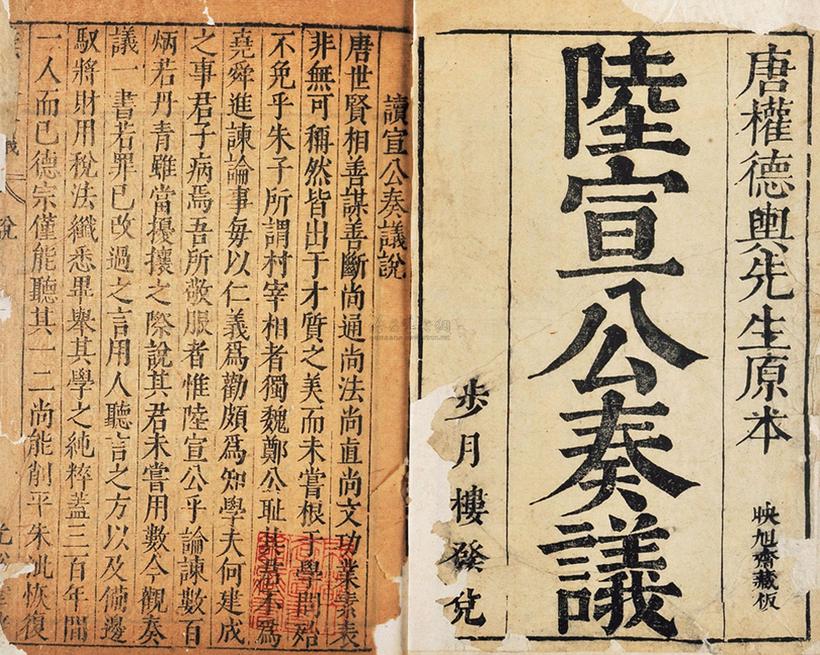 唐權德輿先生原本
陸宣公奏議
映旭齋藏板
步月樓發兌
讀宣公奏議說
唐世賢相善謀善斷尚通尚法尚直尚文功業素表
非無可稱然皆出于才質之美而未嘗根于學問殆
不免乎朱子所謂村宰相者獨魏鄭公耻其君不為
堯舜進諫論事每以仁義爲勸頗爲知學夫何建成
之事君子病焉吾所敬服者惟陸宣公乎論諫數百
炳若丹青雖當擾攘之際說其君未嘗用數今觀奏
議一書若罪已改過之言用人聽言之方以及備邊
馭將財用稅法纖悉畢舉其學之純粹蓋三百年間
一人而已德宗僅能聽其一二尚能削平朱泚恢復
說